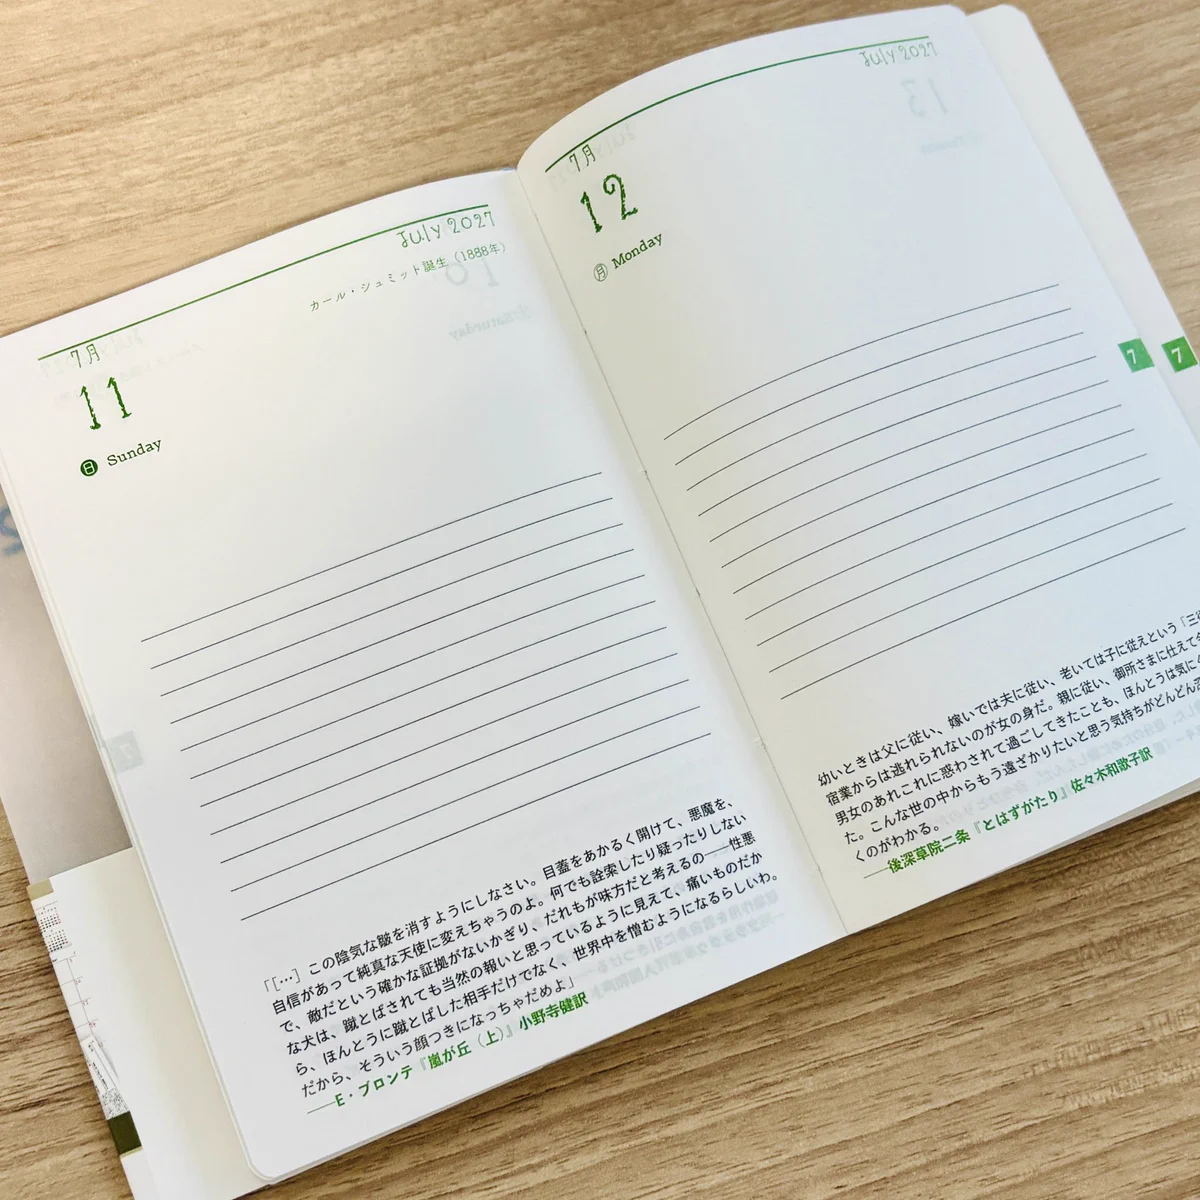 July 2027
カール・シュミット誕生（1888年）
7月
11
日 Sunday
「［…］この陰気な皺を消すようにしなさい。目蓋をあかるく開けて、悪魔を、
自信があって純真な天使に変えちゃうのよ。何でも詮索したり疑ったりしない
で、敵だという確かな証拠がないかぎり、だれもが味方だと考えるの——性悪
な犬は、蹴とばされても当然の報いと思っているように見えて、痛いものだか
ら、ほんとうに蹴とばした相手だけでなく、世界中を憎むようになるらしいわ。
だから、そういう顔つきになっちゃだめよ」
——E・ブロンテ『嵐が丘（上）』小野寺健訳
July 2027
7月
12
月 Monday
7
7
幼いときは父に従い、嫁いでは夫に従い、老いては子に従えという「三従
宿業からは逃れられないのが女の身だ。親に従い、御所さまに仕えて
男女のあれこれに惑わされて過ごしてきたことも、ほんとうは気に
た。こんな世の中からもう遠ざかりたいと思う気持ちがどんどん
くのがわかる。
——後深草院二条『とはずがたり』佐々木和歌子訳